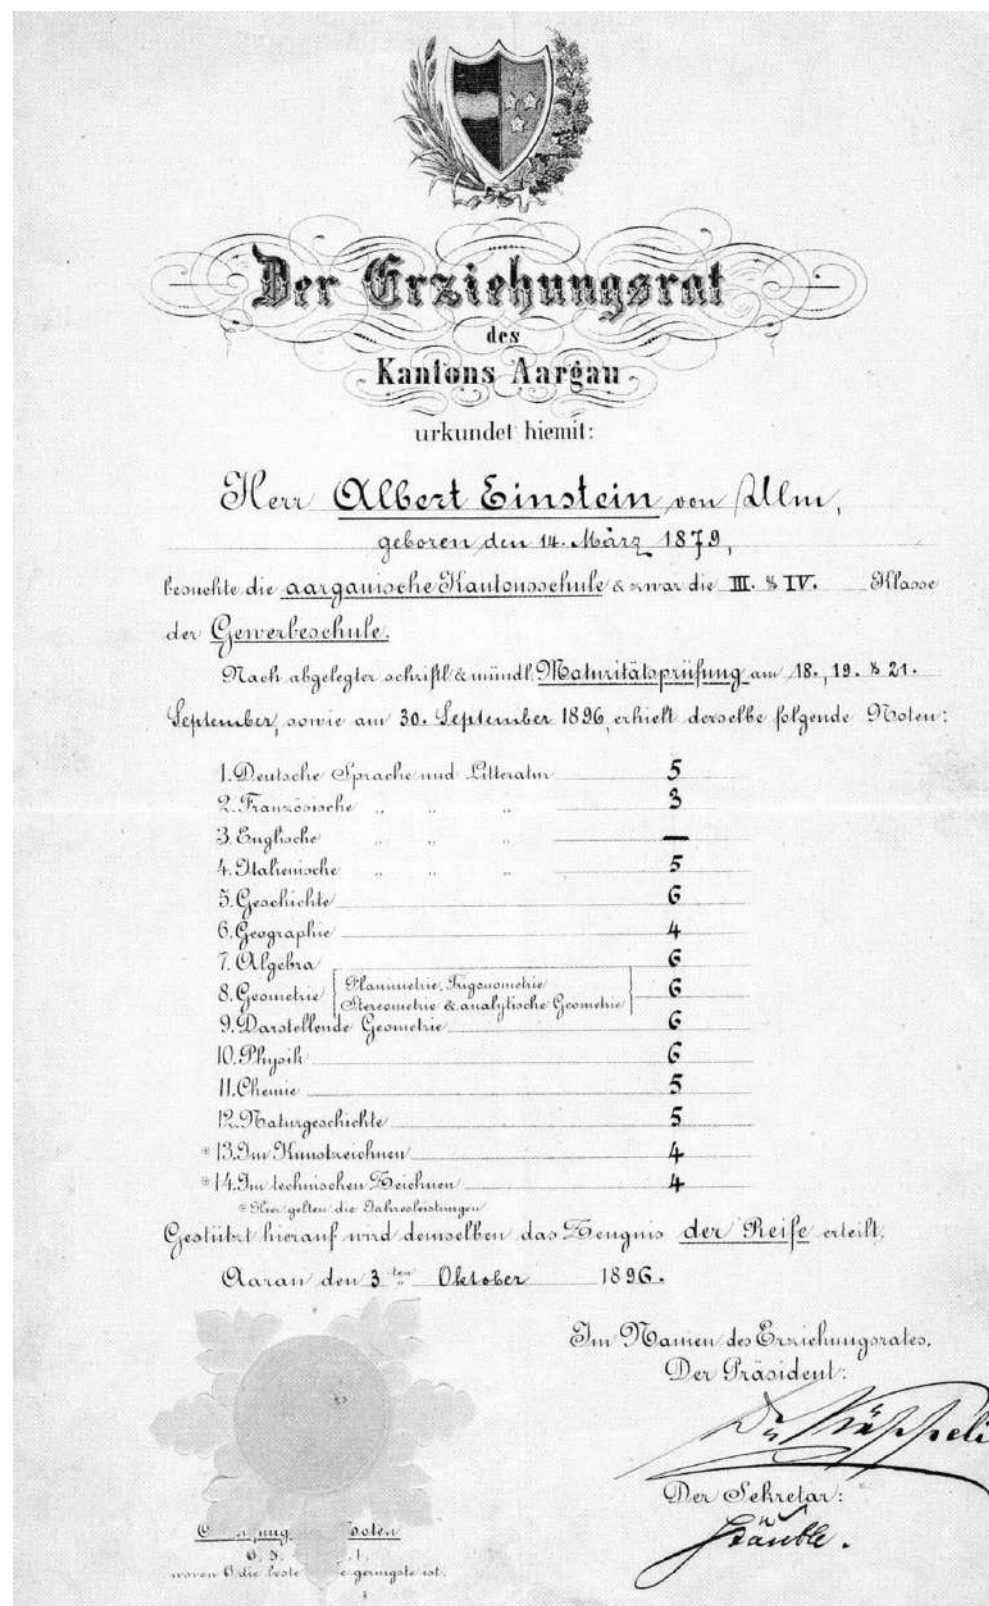 Der Erziehungsrat
des
Kantons Aargau
urkundet hiemit:
Herr Albert Einstein von Ulm,
geboren den 14. März 1879,
besuchte die aargauische Kantonsschule & zwar die III. & IV. Klasse
der Gewerbeschule.
Nach abgelegter schriftl. & mündl. Maturitätsprüfung am 18., 19. & 21.
September, sowie am 30. September 1896, erhielt derselbe folgende Noten:
1. Deutsche Sprache und Litteratur 5
2. Französische „ „ „ 3
3. Englische „ „ „ —
4. Italienische „ „ „ 5
5. Geschichte 6
6. Geographie 4
7. Algebra 6
8. Geometrie Planimetrie, Trigonometrie 6
Stereometrie & analytische Geometrie
9. Darstellende Geometrie 6
10. Physik 6
11. Chemie 5
12. Naturgeschichte 5
* 13. Im Kunstzeichnen 4
* 14. Im technischen Zeichnen 4
* Hier gelten die Jahresleistungen
Gestützt hierauf wird demselben das Zeugnis der Reife erteilt.
Aarau den 3ten Oktober 1896.
Im Namen des Erziehungsrates,
Der Präsident:
Dr. Käppeli
Der Sekretär:
Stäuble.
Noten
6, 5, 1.
wovon 6 die beste geringste ist.